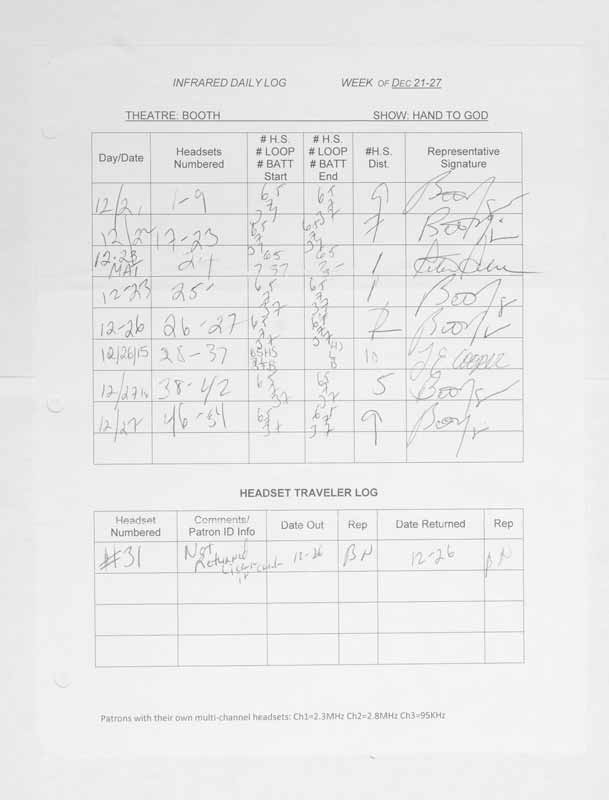 INFRARED DAILY LOG WEEK OF DEC 21-27
THEATRE: BOOTH SHOW: HAND TO GOD
Day/Date Headsets Numbered # H.S. # LOOP # BATT Start # H.S. # LOOP # BATT End #H.S. Dist. Representative Signature
12/21 1-9 65 65 9
12/22 17-23 65 37 7
12-23 MAT 24 65 37 65 1
12-23 25 65 37 65 37 1
12-26 26-27 65 37 65 2
12/26/15 28-37 65HS 10 Cooper
12/27 38-42 65 37 65 37 5
12/27 46-54 65 37 65 37 9
HEADSET TRAVELER LOG
Headset Numbered Comments/ Patron ID Info Date Out Rep Date Returned Rep
#31 Not Returned 12-26 BN 12-26 BN
Patrons with their own multi-channel headsets: Ch1=2.3MHz Ch2=2.8MHz Ch3=95KHz